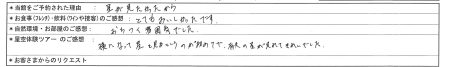 *当館をご予約された理由 : 星が見たったから
*お食事(フレンチ)・飲料(ワインや接客)のご感想 : とてもおいしかったです。
*自然環境・お部屋のご感想 : おちつく雰囲気でした。
*星空体験ツアー のご感想 : 横になって星と見るというのが初めてで、満天の星が見れてきれいでした。
*お客さまからのリクエスト